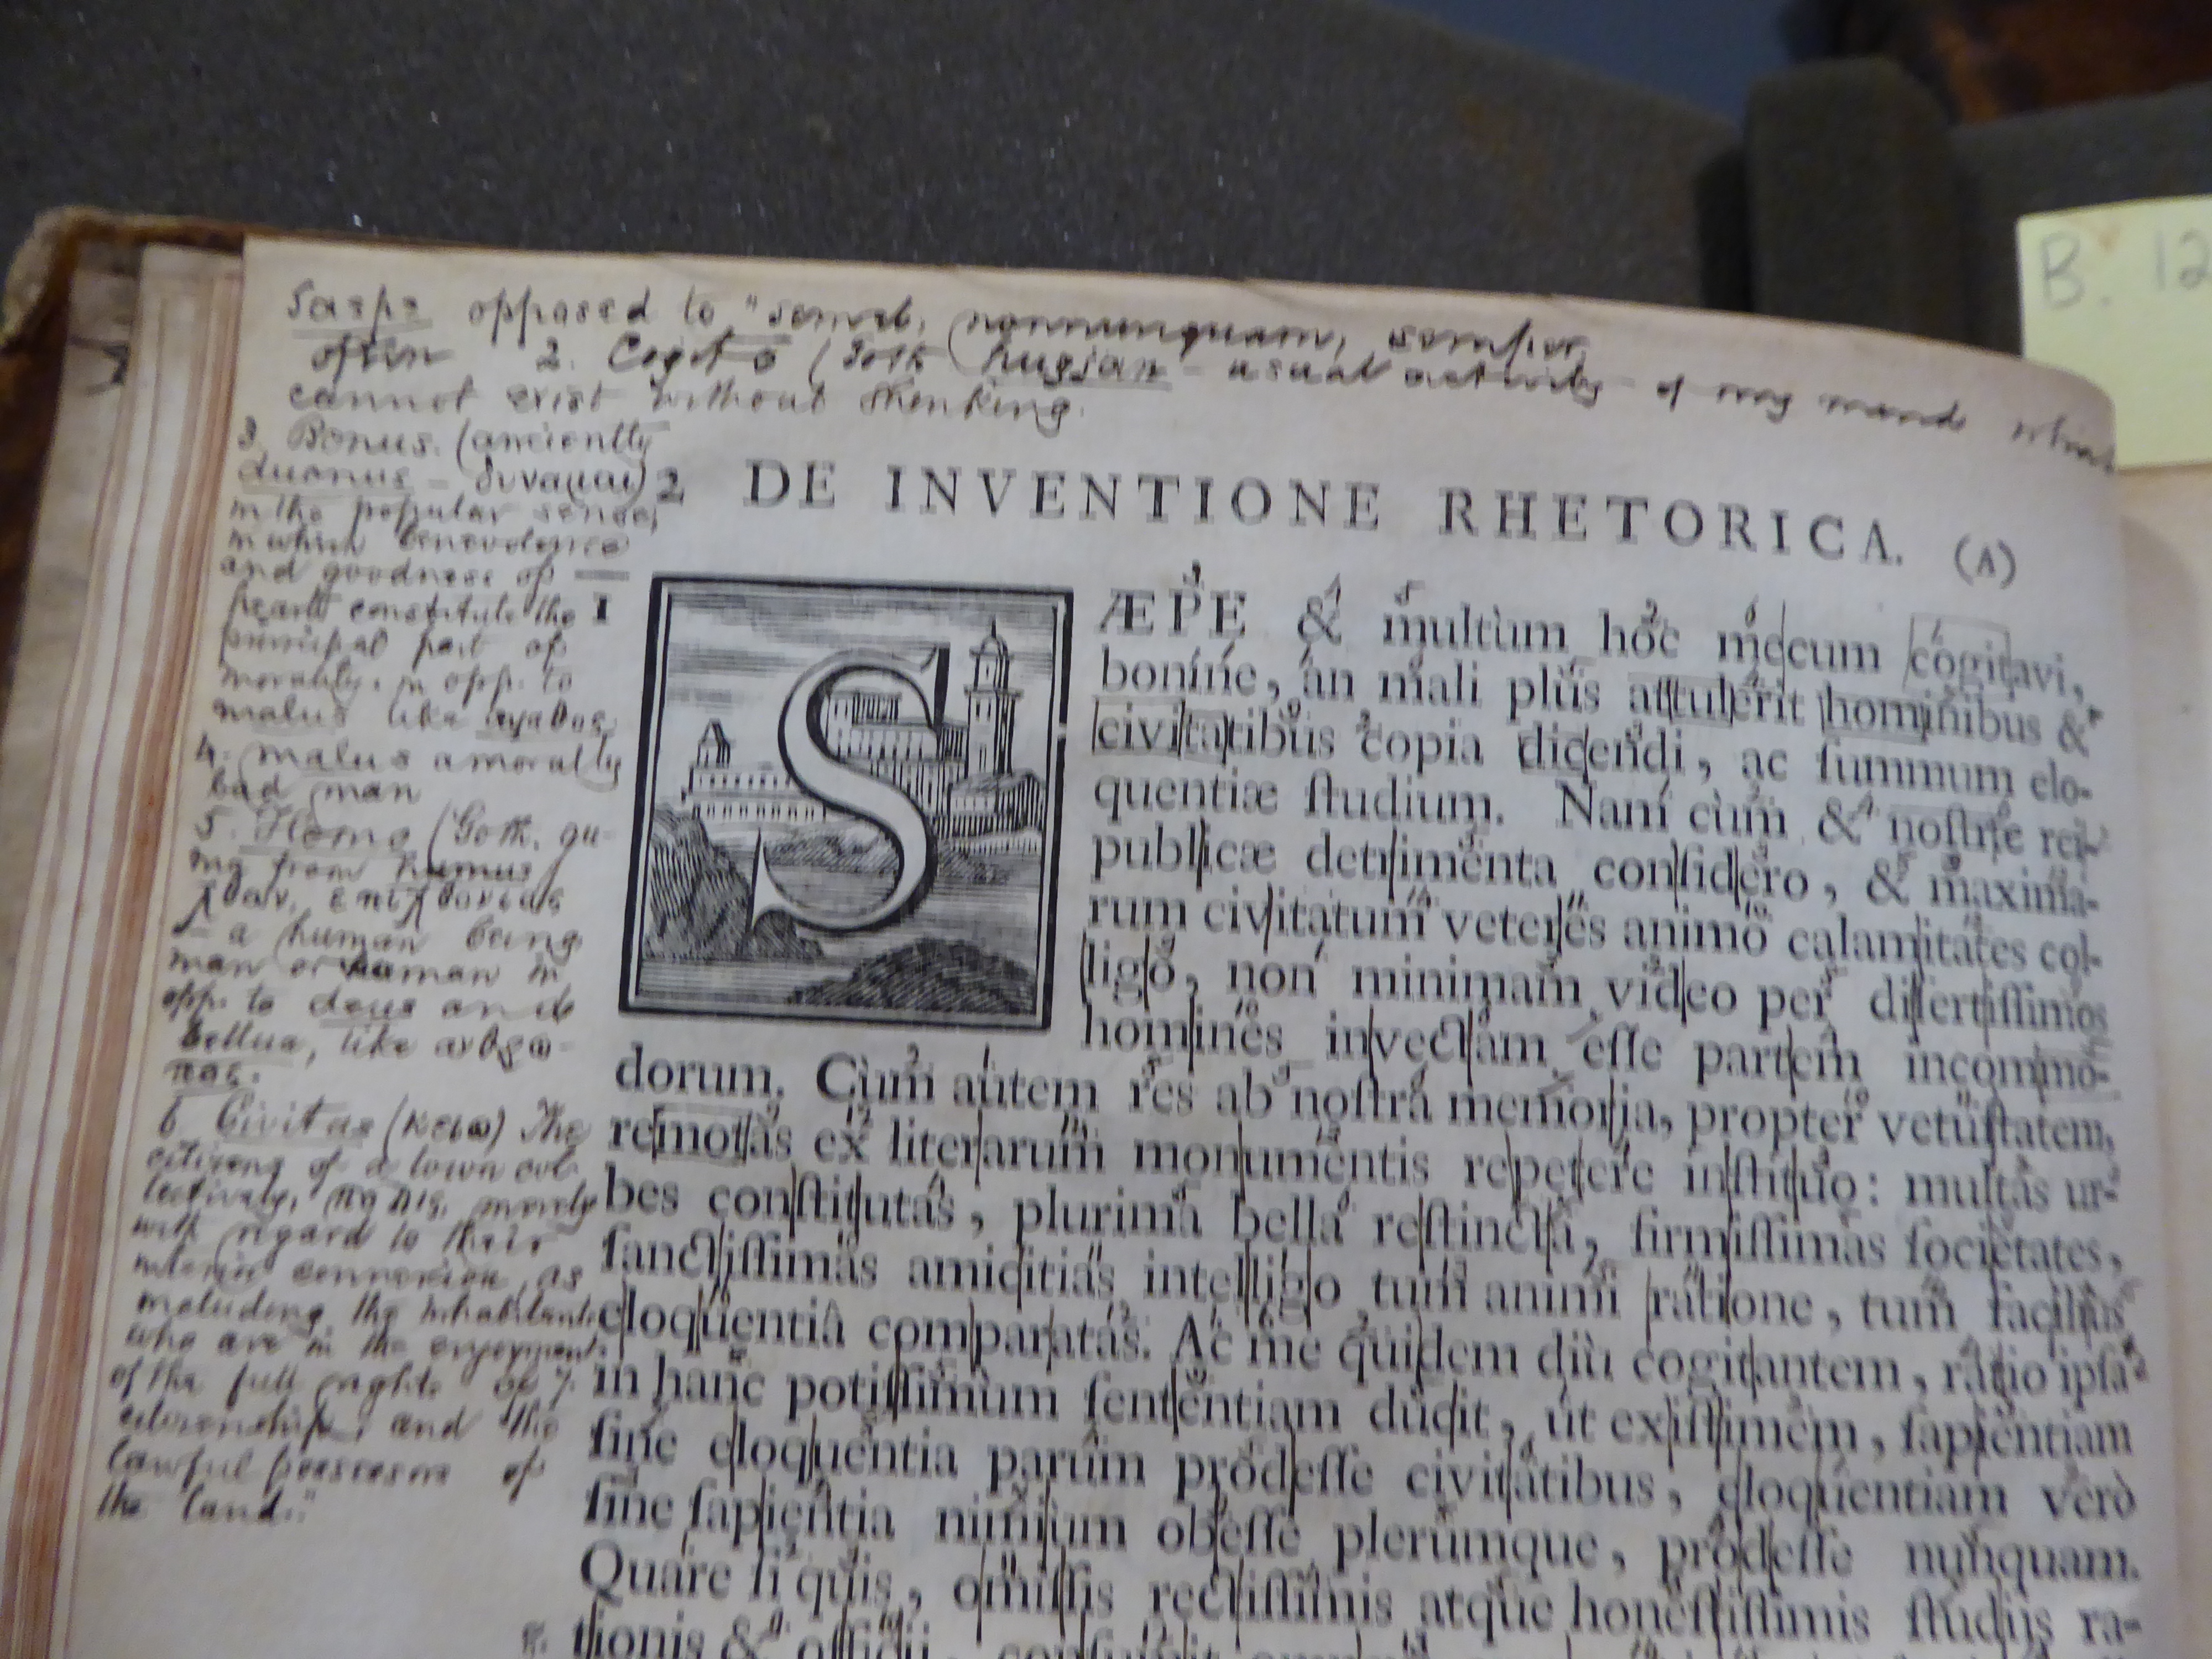 Saepe opposed to "semel, nonnunquam, semper
often 2. Cogito (Goth hugjan - usual activity of my mind which
cannot exist without thinking.
3. Bonus. (anciently
duonus - δυναμαι)
in the popular sense,
in which benevolence
and goodness of
heart constitute the
principal part of
morality. in opp. to
malus like αγαθος.
4. malus a morally
bad man
5. Homo (Goth. gu-
ma from humus
χθων, επιχθονιος
- a human being
man or woman in
opp. to deus and
bellua, like ανθρω-
πος.
6 Civitas (κειω) The
citizens of a town col-
lectively, πολις, merely
with regard to their
interior connexion, as
including the inhabitants
who are in the enjoyment
of the full rights of
citizenship, and the
lawful possession of
the land."
B. 12
2 DE INVENTIONE RHETORICA. (A)
I SÆPE & multùm hoc mecum cogitavi,
boníne, an mali plus attulerit hominibus &
civitatibus copia dicendi, ac ſummum elo-
quentiæ ſtudium. Nam cùm & noſtræ rei-
publicæ detrimenta conſidero, & maxima-
rum civitatum veteres animo calamitates col-
ligo, non minimam video per diſertiſſimos
homines invectam eſſe partem incommo-
dorum. Cùm autem res ab noſtra memoria, propter vetuſtatem,
remotas ex literarum monumentis repetere inſtituo: multas ur-
bes conſtitutas, plurima bella reſtincta, firmiſſimas ſocietates,
ſanctiſſimas amicitias intelligo tum animi ratione, tum faciliùs
eloquentiâ comparatas. Ac me quidem diù cogitantem, ratio ipſa
in hanc potiſſimùm ſententiam ducit, ut exiſtimem, ſapientiam
ſine eloquentia parum prodeſſe civitatibus, eloquentiam verò
ſine ſapientia nimium obeſſe plerumque, prodeſſe nunquam.
Quare ſi quis, omiſſis rectiſſimis atque honeſtiſſimis ſtudiis ra-
tionis & officii, conſumit